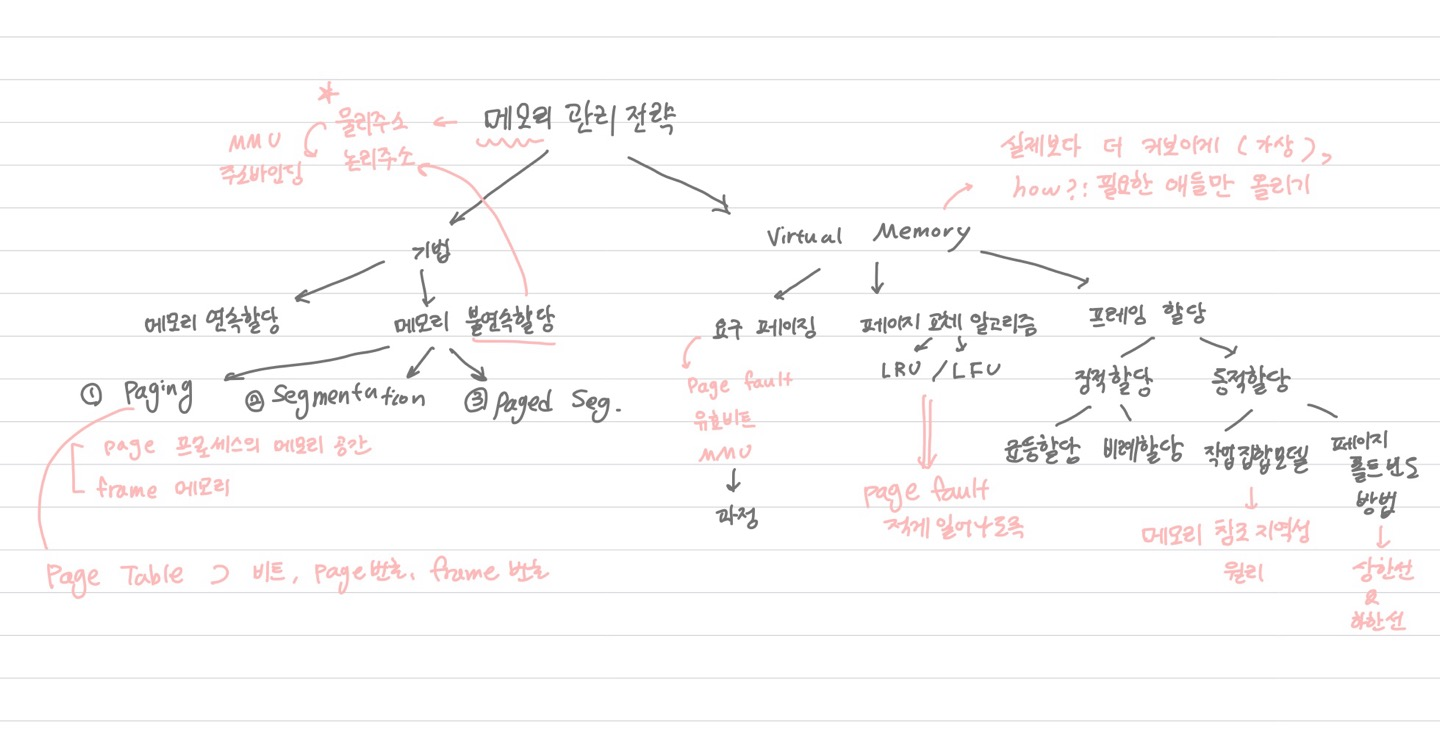 메모리 관리 전략
* 물리주소
논리주소
MMU
주소바인딩
실제보다 더 커보이게 (가상),
how?: 필요한 애들만 올리기
기법
Virtual Memory
메모리 연속할당
메모리 불연속할당
① Paging
② Segmentation
③ Paged Seg.
page 프로세스의 메모리 공간
frame 메모리
Page Table ⊃ 비트, page번호, frame 번호
요구 페이징
Page fault
유효비트
MMU
과정
페이지 교체 알고리즘
LRU / LFU
page fault
적게 일어나도록
프레임 할당
정적할당
균등할당
비례할당
동적할당
작업집합모델
메모리 참조 지역성
원리
페이지
폴트빈도
방법
상한선
&
하한선